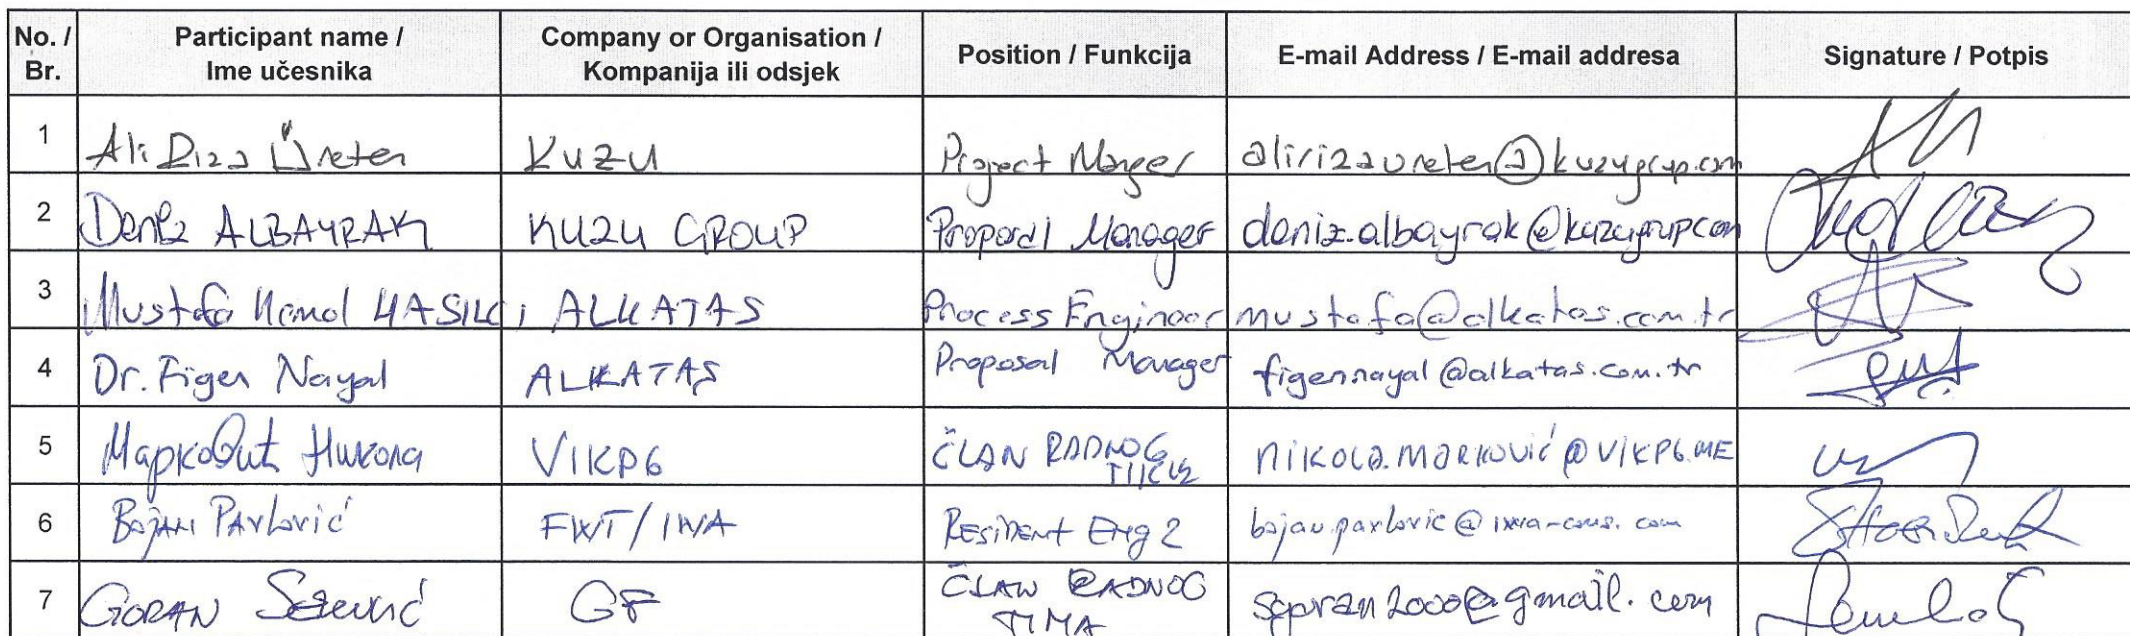 No. / Br. Participant name / Ime učesnika Company or Organisation / Kompanija ili odsjek Position / Funkcija E-mail Address / E-mail addresa Signature / Potpis
1 Ali Riza Üreten KUZU Project Manger alirizaureten@kuzugrup.com
2 Deniz ALBAYRAK KUZU GROUP Proposal Manager deniz.albayrak@kuzugrup.com
3 Mustafa Kemal YASILCI ALKATAS Process Engineer mustafa@alkatas.com.tr
4 Dr. Figen Nayal ALKATAS Proposal Manager figennayal@alkatas.com.tr
5 Марковић Никола VIKPG ČLAN RADNOG NIKOLA.MARKOVIĆ@VIKPG.ME
6 BOJAN PAVLOVIĆ FWT/IWA RESIDENT Eng 2 bojan.pavlovic@iwa-cons.com
7 GORAN GF ČLAN RADNOG TIMA